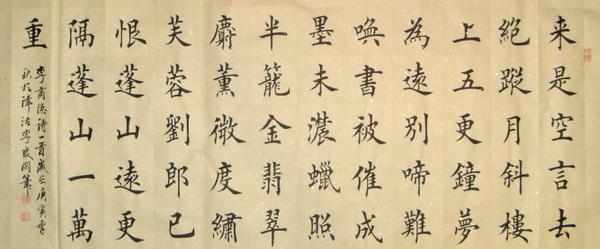 来是空言去
絕蹤月斜樓
上五更鐘夢
為遠別啼難
喚書被催成
墨未濃蠟照
半籠金翡翠
麝薰微度繡
芙蓉劉郎已
恨蓬山遠更
隔蓬山一萬
重
李商隱詩一首歲在庚寅